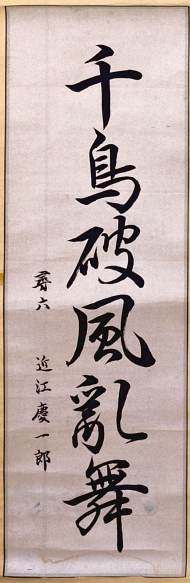 千鳥破風乱舞
尋六 近江慶一郎